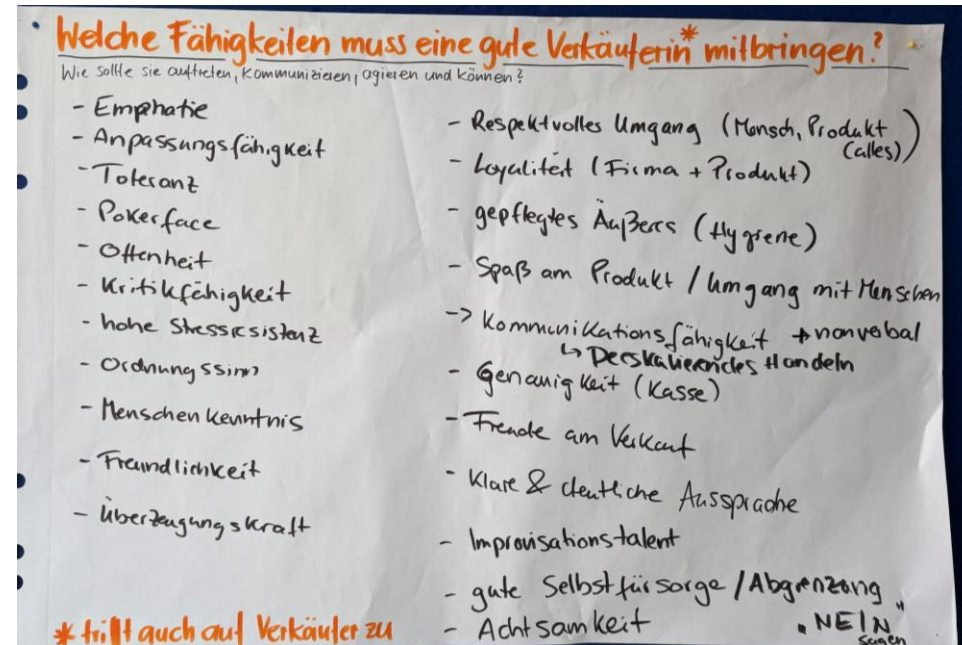 Welche Fähigkeiten muss eine gute Verkäuferin* mitbringen?
Wie sollte sie auftreten, kommunizieren, agieren und können?
- Emphatie
- Anpassungsfähigkeit
- Toleranz
- Pokerface
- Offenheit
- Kritikfähigkeit
- hohe Stressresistenz
- Ordnungssinn
- Menschenkenntnis
- Freundlichkeit
- Überzeugungskraft
* trifft auch auf Verkäufer zu
- Respektvolles Umgang (Mensch, Produkt
(alles))
- Loyalität (Firma + Produkt)
- gepflegtes Äußeres (Hygiene)
- Spaß am Produkt / Umgang mit Menschen
-> Kommunikationsfähigkeit + nonverbal
↳ Deeskalierendes Handeln
- Genauigkeit (Kasse)
- Freude am Verkauf
- Klare & deutliche Aussprache
- Improvisationstalent
- gute Selbstfürsorge / Abgrenzung
- Achtsamkeit
"NEIN"
sagen